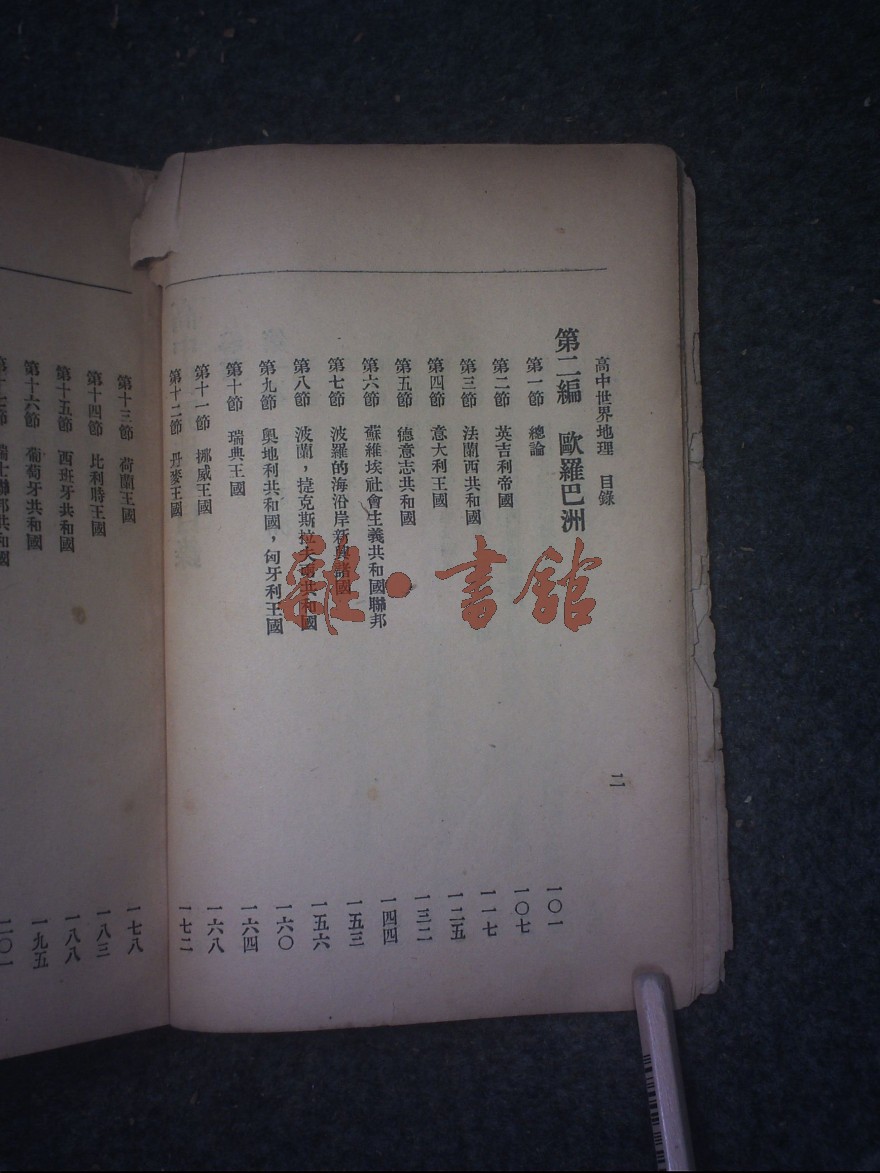 高中世界地理 目錄 二
第二編 歐羅巴洲
第一節 總論 一〇一
第二節 英吉利帝國 一〇七
第三節 法蘭西共和國 一一七
第四節 意大利王國 一二五
第五節 德意志共和國 一三二
第六節 蘇維埃社會主義共和國聯邦 一四四
第七節 波羅的海沿岸新興諸國 一五三
第八節 波蘭，捷克斯拉夫兩共和國 一五六
第九節 奧地利共和國，匈牙利王國 一六〇
第十節 瑞典王國 一六四
第十一節 挪威王國 一六八
第十二節 丹麥王國 一七二
第十三節 荷蘭王國 一七八
第十四節 比利時王國 一八三
第十五節 西班牙共和國 一八八
第十六節 葡萄牙共和國 一九五
第十七節 瑞士聯邦共和國 二〇一
雜·書館